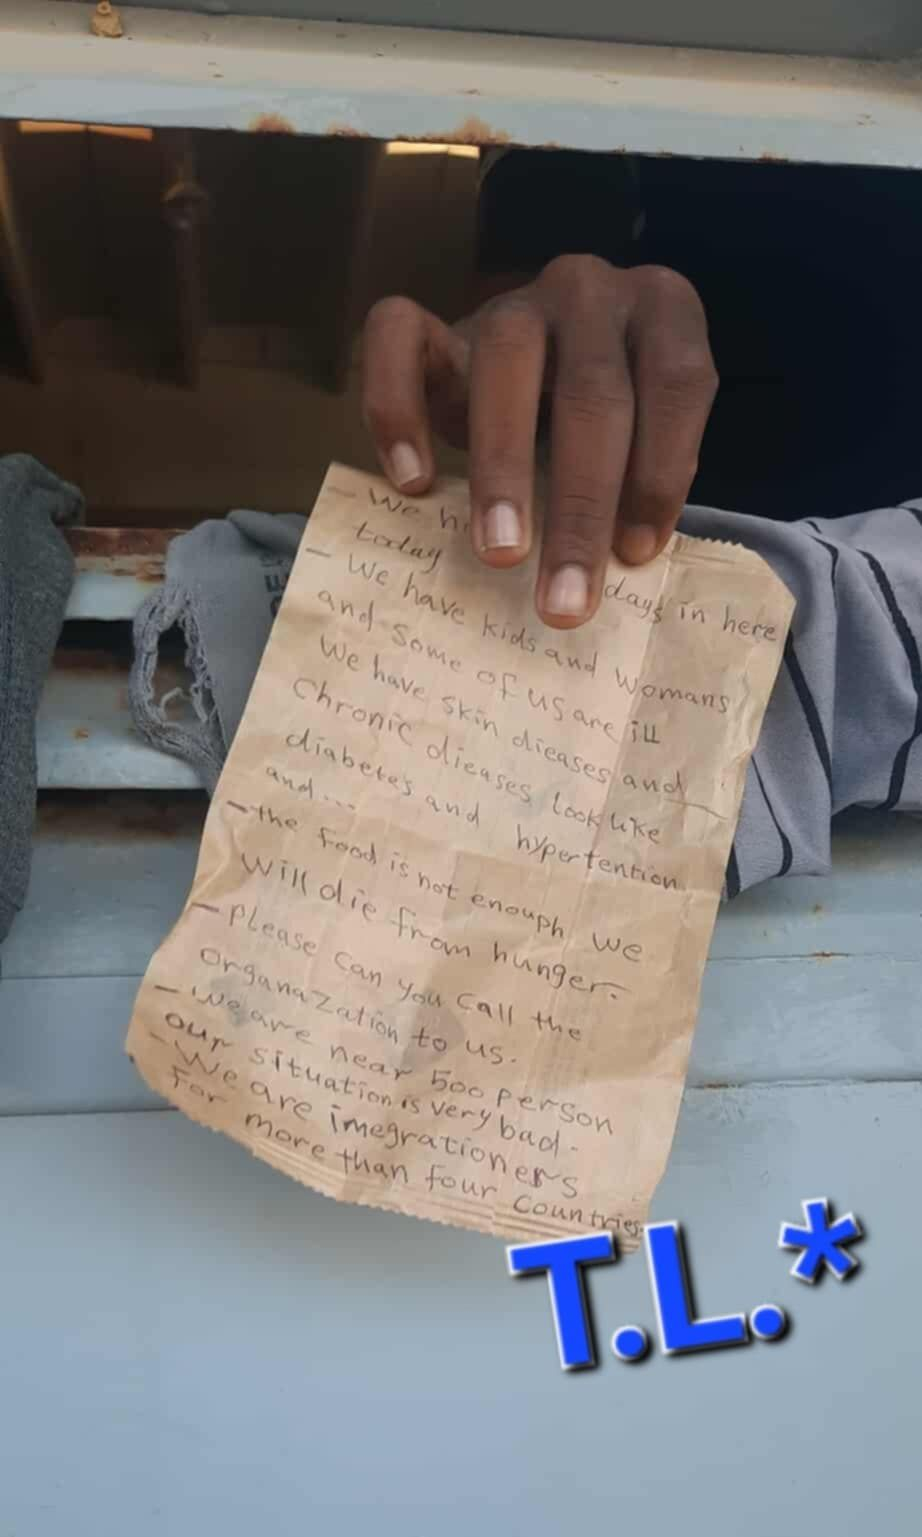 - We
today days in here
- We have kids and womans
and some of us are ill
We have skin dieases and
Chronic dieases look like
diabetes and hypertention
and...
- the food is not enouph we
will die from hunger.
- please can you call the
organazation to us.
- we are near 500 person
our situation is very bad.
- We are imegrationers
for more than four countries.
T.L.*